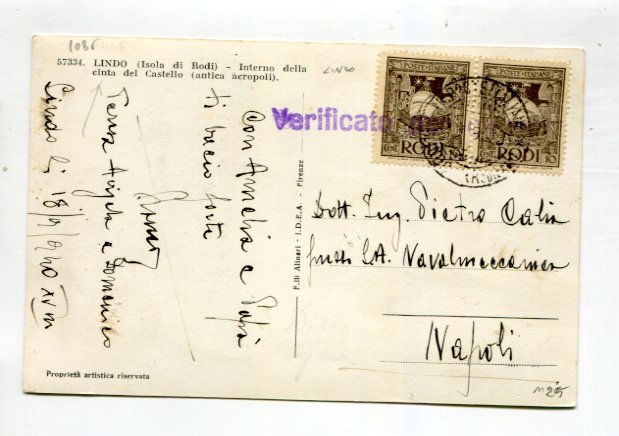 1085
57334. LINDO (Isola di Rodi) - Interno della
cinta del Castello (antica acropoli).
LINDO
Con Amelia e Papà
ti bacio forte
Teresa Angela e Domenico
Lindo li 18/9/940 XVIII
Proprietà artistica riservata
F.lli Alinari - I.D.E.A. - Firenze
Verificato per
POSTE·ITALIANE
CENT RODI 10
POSTE·ITALIANE
RODI 10
Dott. Ing. Pietro Calia
presso S.A. Navalmeccanica
Napoli
M25